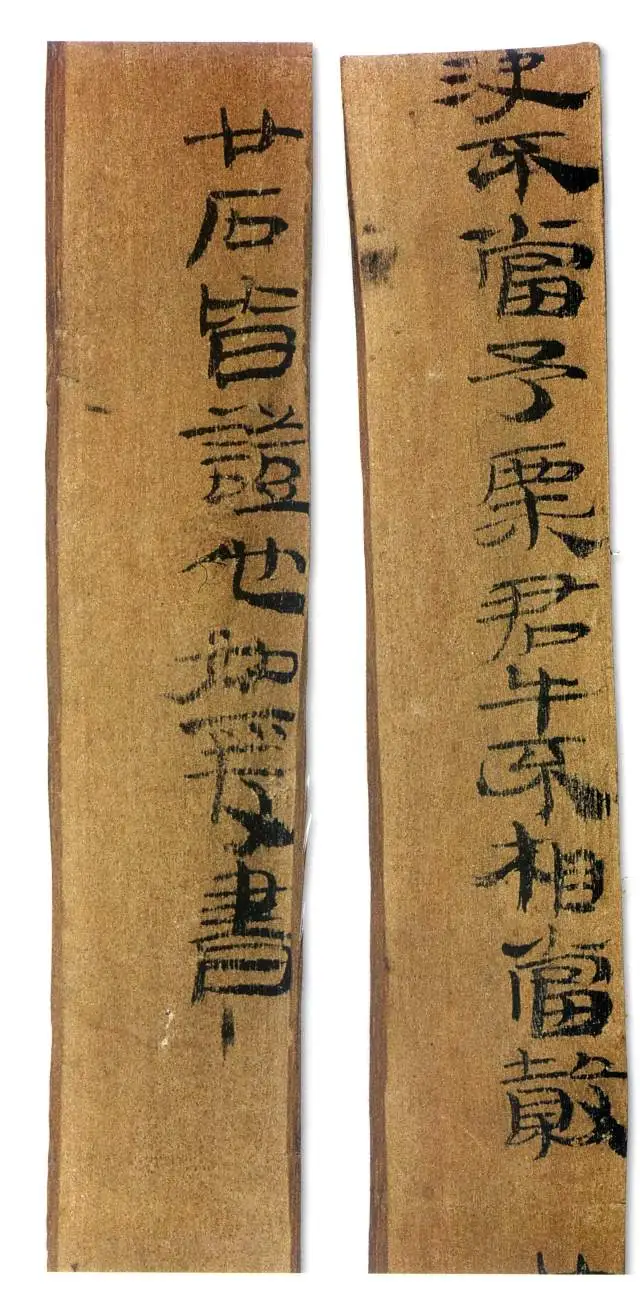 決不當予粟君牛不相當穀
廿石皆證也如爰書